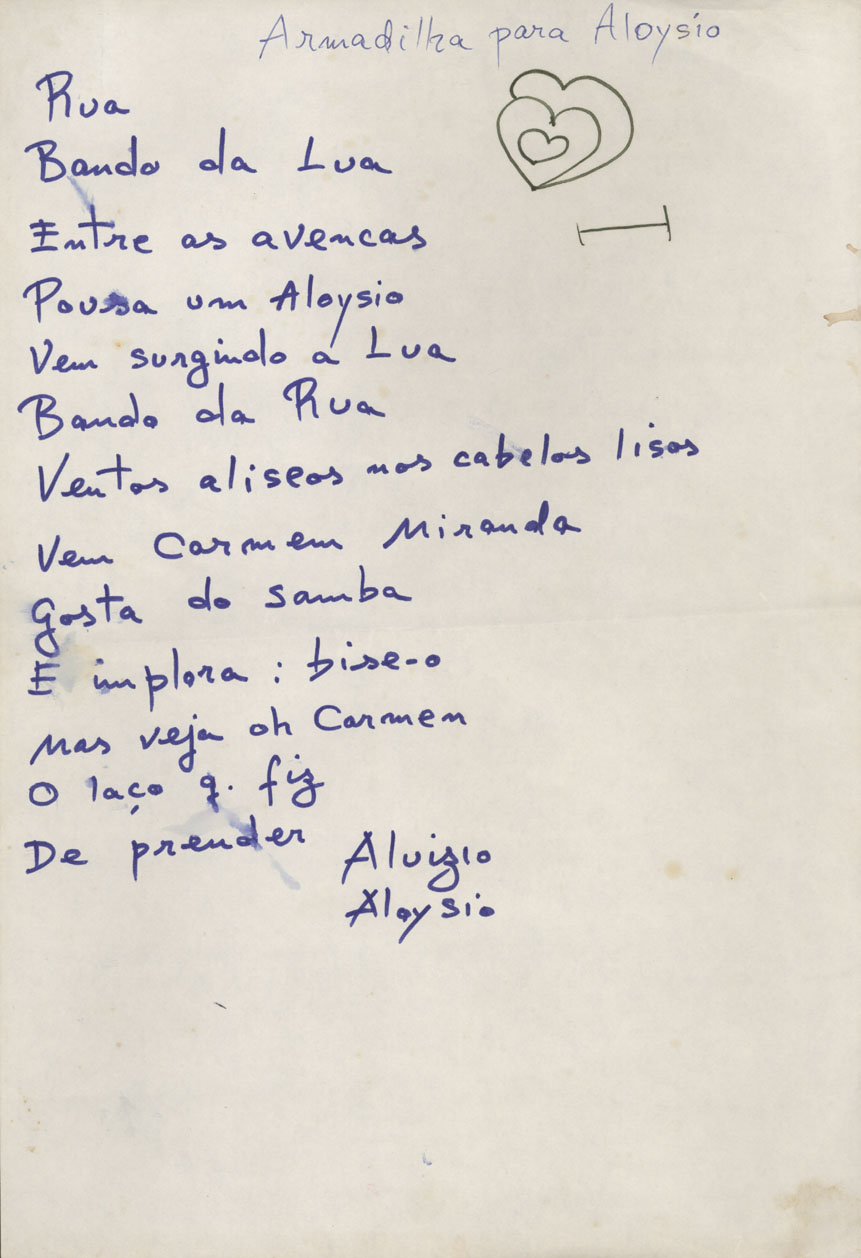 Armadilha para Aloysio
Rua
Bando da Lua
Entre as avencas
Pousa um Aloysio
Vem surgindo a Lua
Bando da Rua
Ventos aliseos nos cabelos lisos
Vem Carmem Miranda
Gosta do samba
E implora : bise-o
Mas veja oh Carmen
O laço q. fiz
De prender Aluizio
Aloysio